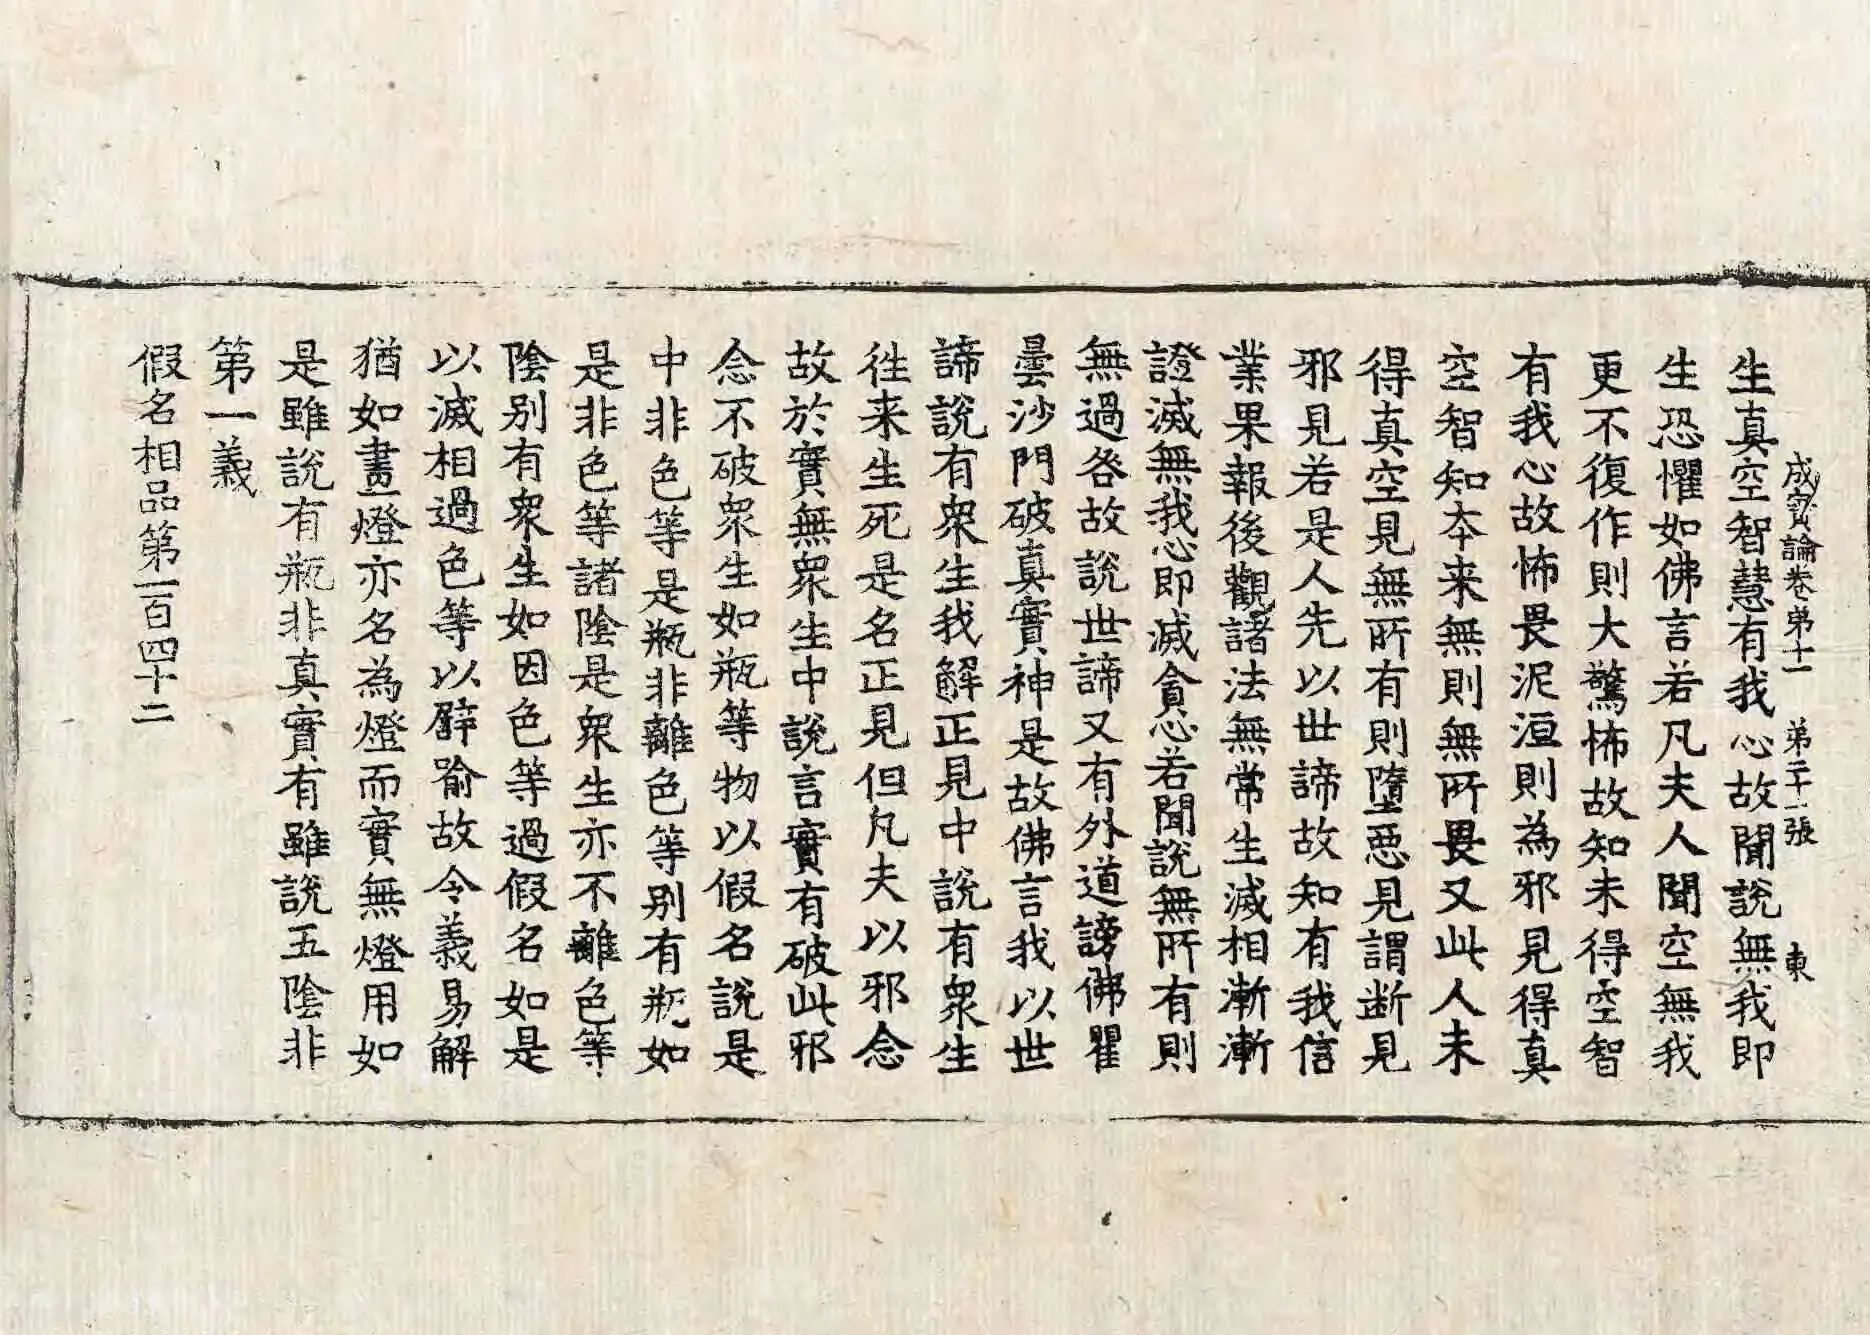 成實論卷第十一　第二十一張　東
生真空智慧有我心故聞說無我即
生恐懼如佛言若凡夫人聞空無我
更不復作則大驚怖故知未得空智
有我心故怖畏泥洹則為邪見得真
空智知本来無則無所畏又此人未
得真空見無所有則墮惡見謂断見
邪見若是人先以世諦故知有我信
業果報後觀諸法無常生滅相漸漸
證滅無我心即滅貪心若聞說無所有則
無過咎故說世諦又有外道謗佛瞿
曇沙門破真實神是故佛言我以世
諦說有衆生我解正見中說有衆生
往来生死是名正見但凡夫以邪念
故於實無衆生中說言實有破此邪
念不破衆生如瓶等物以假名說是
中非色等是瓶非離色等别有瓶如
是非色等諸陰是衆生亦不離色等
陰别有衆生如因色等過假名如是
以滅相過色等以譬喻故令義易解
猶如畫燈亦名為燈而實無燈用如
是雖說有瓶非真實有雖說五陰非
第一義
假名相品第一百四十二